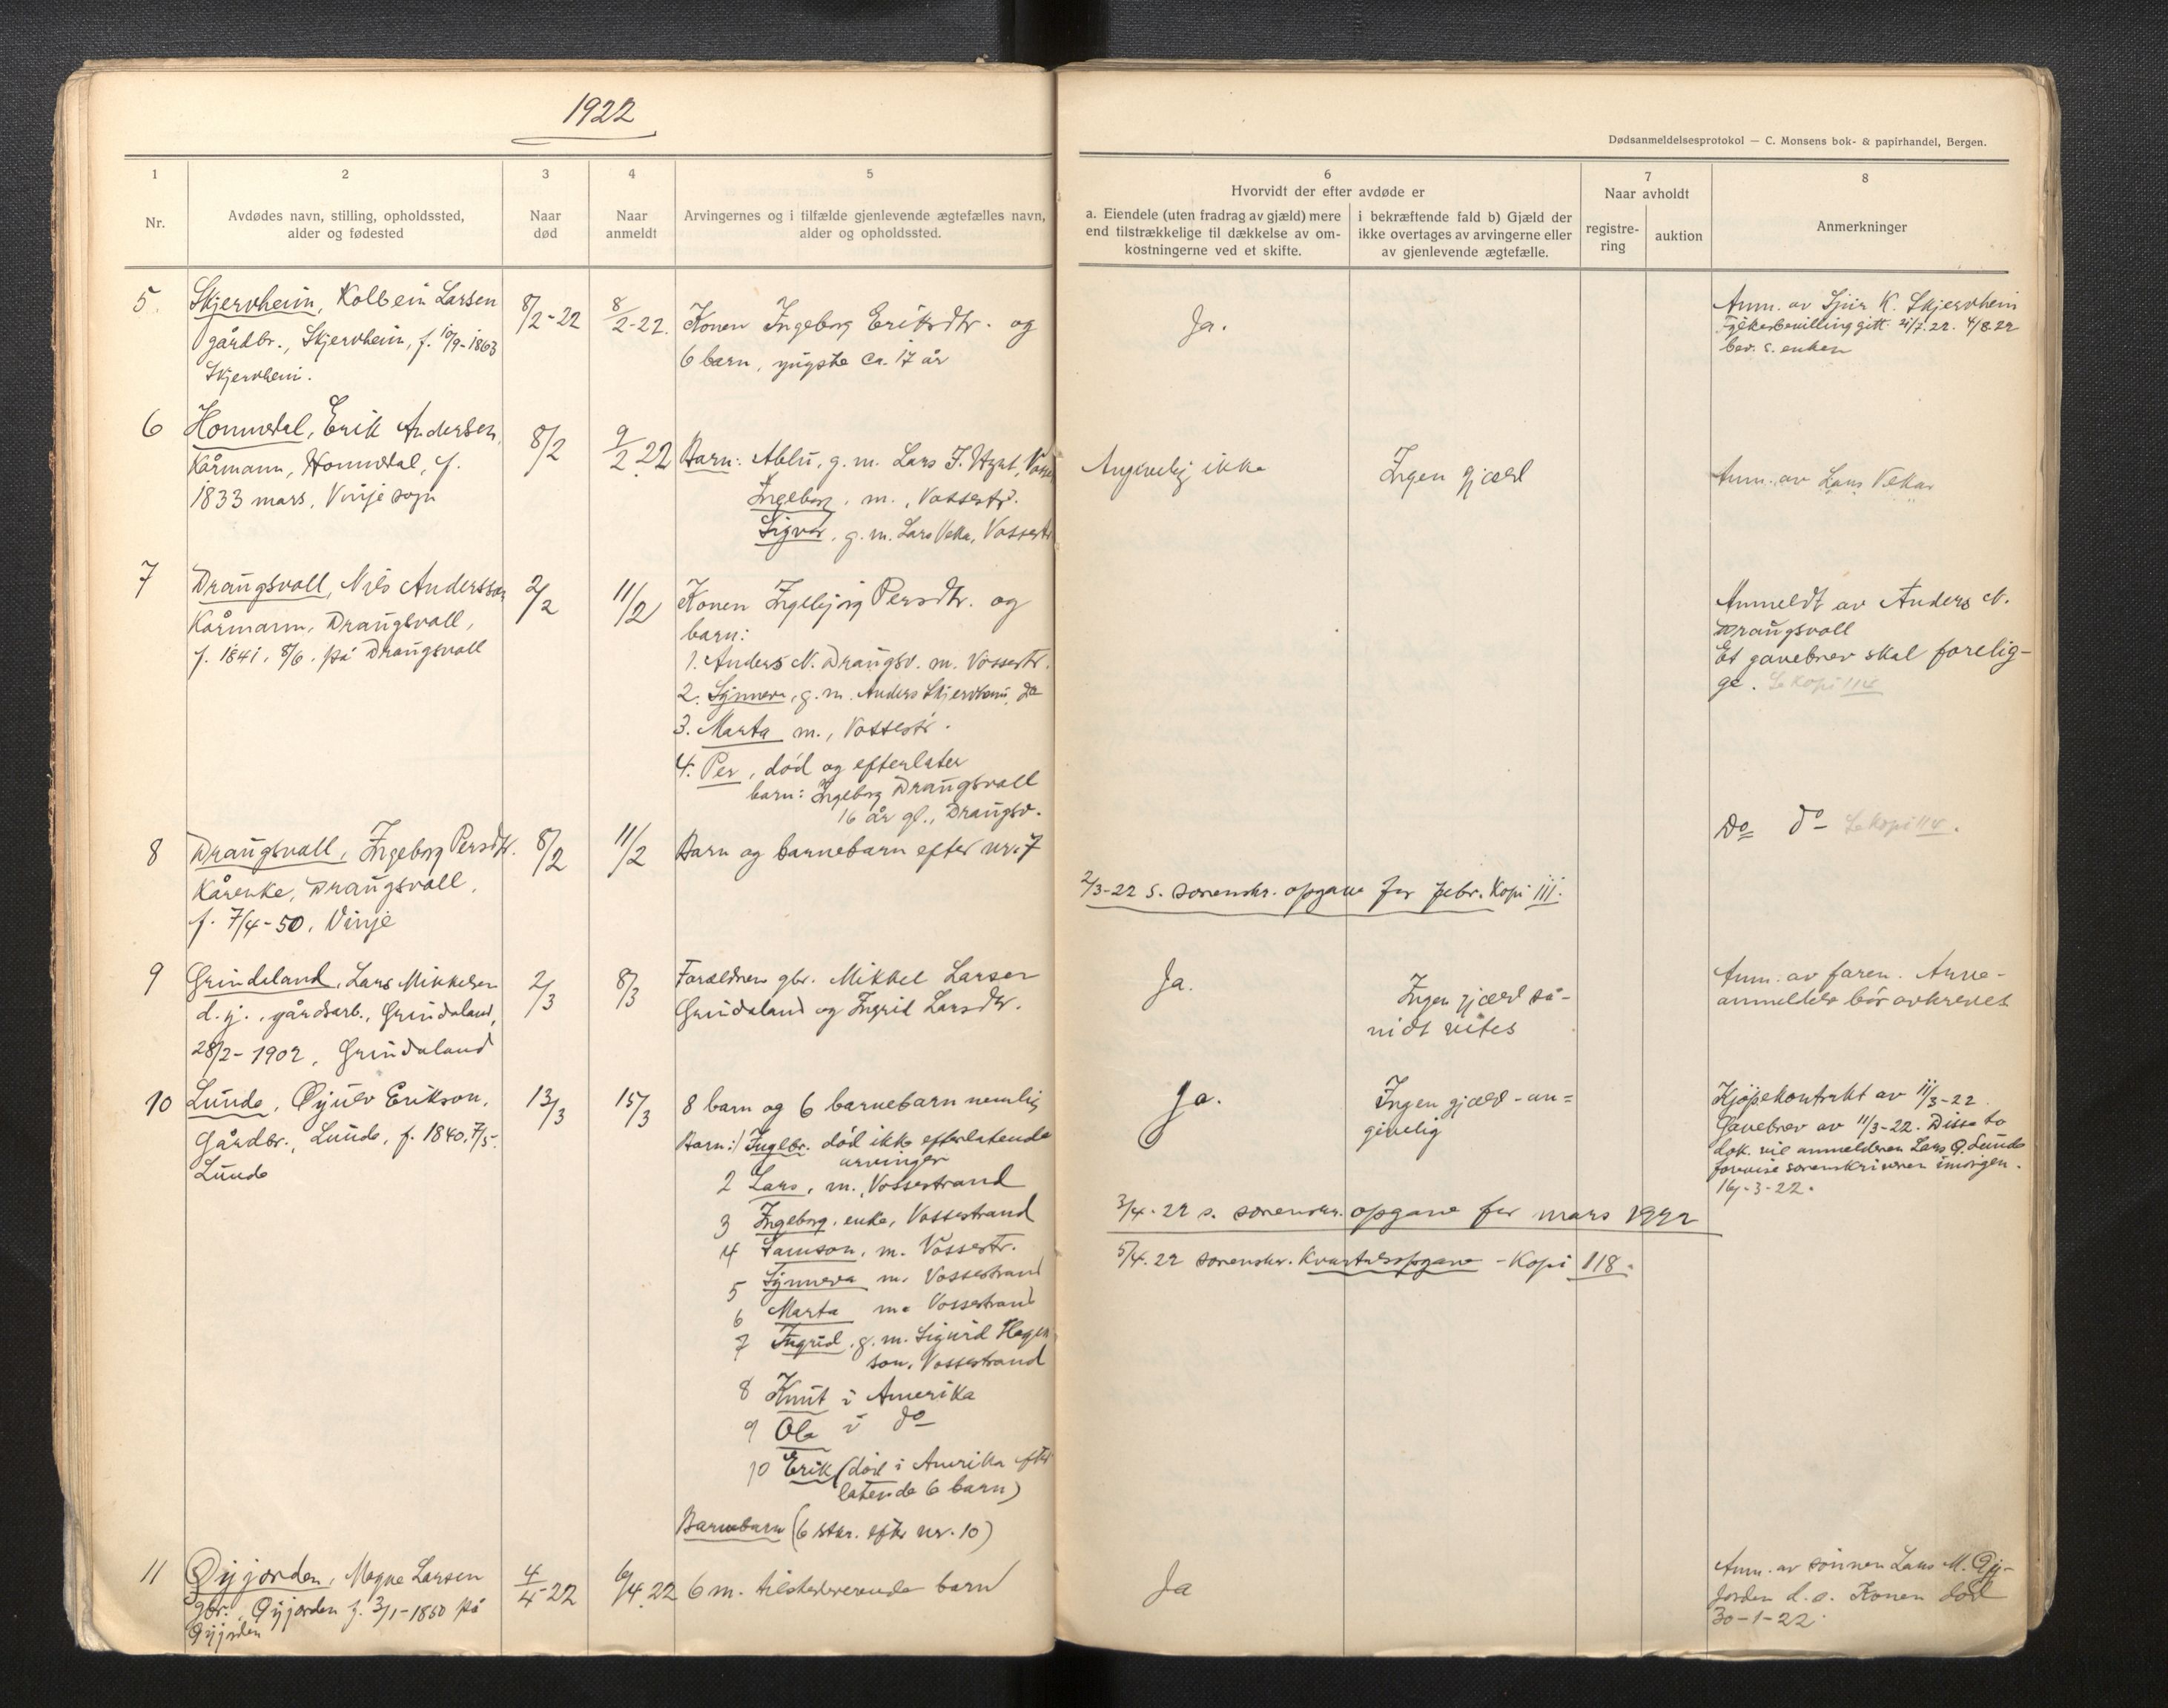 1922
Dødsanmeldelsesprotokol — C. Monsens bok- & papirhandel, Bergen.
1
2
3
4
5
Nr.
Avdødes navn, stilling, opholdssted,
alder og fødested
Naar
død
Naar
anmeldt
Arvingernes og i tilfælde gjenlevende ægtefælles navn,
alder og opholdssted.
6
Hvorvidt der efter avdøde er
a. Eiendele (uten fradrag av gjæld) mere
end tilstrækkelige til dækkelse av om-
kostningerne ved et skifte.
i bekræftende fald b) Gjæld der
ikke overtages av arvingerne eller
av gjenlevende ægtefælle.
7
Naar avholdt
registre-
ring
auktion
8
Anmerkninger
5
Skjervheim, Kolbein Larsen
gårdbr., Skjervheim, f. 10/9-1863
Skjervheim.
8/2-22
8/2-22.
Konen Ingeborg Eriksdtr. og
6 barn, yngste ca. 17 år
Ja.
Anm. av Sjur K. Skjervheim
Fylkesbevilling gitt 21/7.22. 4/8.22
bev. s. enken
6
Hommedal, Erik Andersen,
Kårmann, Hommedal, f.
1833 mars, Vinje sogn
8/2
9/2 22
Barn: g. m. Lars
Ingeborg, m., Vossestr.
Sigvor, g. m. Lars Veka, Vossestr
Angivelig ikke
Ingen gjæld
Anm. av Lars Vekar
7
Draugsvoll, Nils Andersson
Kårmann, Draugsvoll,
f. 1841, 8/6. på Draugsvoll
2/2
11/2
Konen Ingebjørg Persdtr. og
barn:
1. Anders N. Draugsv. m. Vossestr.
2. Synneva, g. m. Anders Skjervheim, do
3. Marta m., Vossestr.
4. Per, død og efterlater
barn: Ingeborg Draugsvoll
16 år gl., Draugsv.
Anmeldt av Anders N.
Draugsvoll
Et gavebrev skal forelig-
ge. Se kopi 114
8
Draugsvoll, Ingeborg Persdtr.
Kårenke, Draugsvoll,
f. 7/4-50, Vinje
8/2
11/2
Barn og barnebarn efter nr. 7
Do do Se kopi 114.
2/3-22 s. sorenskr. opgave for febr. Kopi 111.
9
Grindeland, Lars Mikkelsen
d. y., gårdsarb., Grindeland,
28/2-1902, Grindeland
2/3
8/3
Forældrene gbr. Mikkel Larsen
Grindeland og Ingrid Larsdtr.
Ja.
Ingen gjæld så-
vidt vites
Anm. av faren. Arve-
anmeldelse bør avkreves
10
Lunde, Øyulv Erikson,
Gårdbr., Lunde, f. 1840, 7/5.
Lunde
13/3
15/3
8 barn og 6 barnebarn nemlig
Barn: 1 Ingebr. død ikke efterlatende
arvinger
2 Lars, m., Vossestrand
3 Ingeborg, enke, Vossestrand
4 Samson, m. Vossestr.
5 Synneva m. Vossestrand
6 Marta m. Vossestrand
7 Ingrid, g. m. Sigurd Hagen
son, Vossestrand
8 Knut i Amerika
9 Ola i do
10 Erik (død i Amerika efter
latende 6 barn)
Barnebarn (6 stkr. efter nr. 10)
Ja.
Ingen gjæld - an=
givelig
Kjøpekontrakt av 11/3-22.
Gavebrev av 11/3-22. Disse to
dok. vil anmelderen Lars Ø. Lunde
forevise sorenskriveren imorgen.
16-3-22.
3/4-22 s. sorenskr. opgave for mars 1922
5/4.22 sorenskr. Kvartalsopgave - Kopi 118.
11
Øyjorden, Magne Larsen
gbr., Øyjorden f. 3/1-1850 på
Øyjorden
4/4-22
6/4.22
6 m. tilstedeværende barn
Ja
Anm. av sønnen Lars M. Øy-
jorden d. e. Konen død
30-1-22.